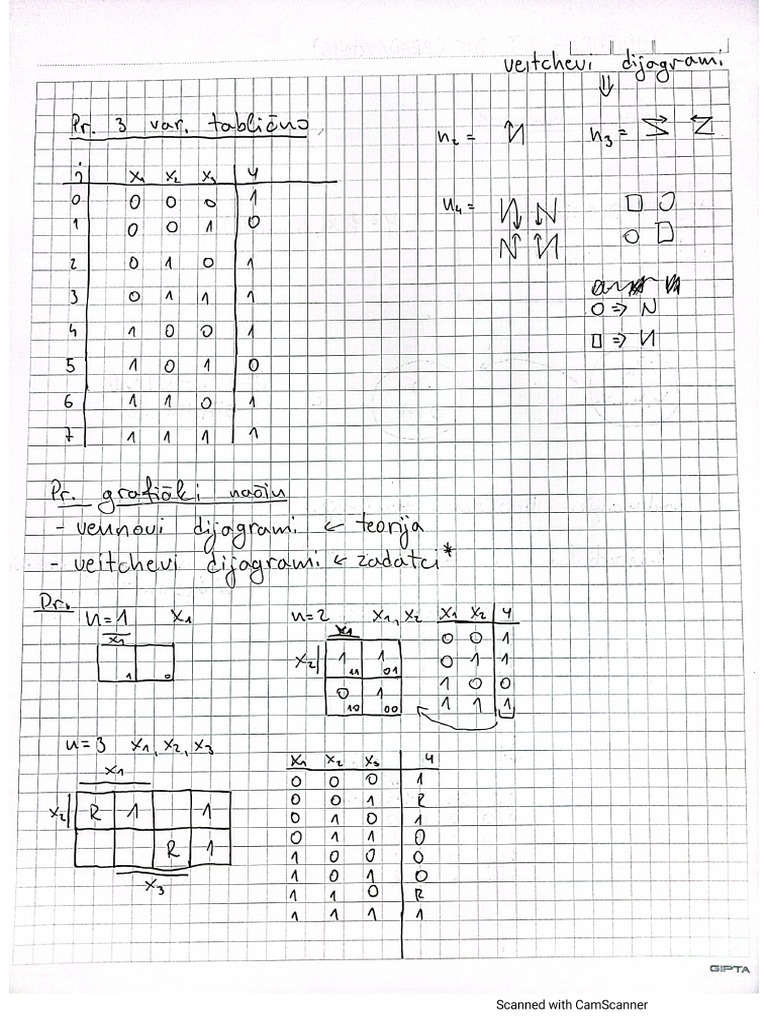 veitchevi dijagrami
⇓
Pr. 3 var. tablično
n₂ = И n₃ =
i x₁ x₂ x₃ y
0 0 0 0 1
1 0 0 1 0
2 0 1 0 1
3 0 1 1 1
4 1 0 0 1
5 1 0 1 0
6 1 1 0 1
7 1 1 1 1
n₄ = И N
N И
□ ○
○ □
○ ⇒ N
□ ⇒ И
Pr. grafički način
- vennovi dijagrami ← teorija
- veitchevi dijagrami ← zadatci*
Pr.
n=1 x₁
x₁
1 0
n=2 x₁, x₂
x₁
x₂ 1 11 1 01
0 10 1 00
x₁ x₂ y
0 0 1
0 1 1
1 0 0
1 1 1
n=3 x₁, x₂, x₃
x₁
x₂ R 1 1
R 1
x₃
x₁ x₂ x₃ y
0 0 0 1
0 0 1 R
0 1 0 1
0 1 1 0
1 0 0 0
1 0 1 0
1 1 0 R
1 1 1 1
GIPTA
Scanned with CamScanner